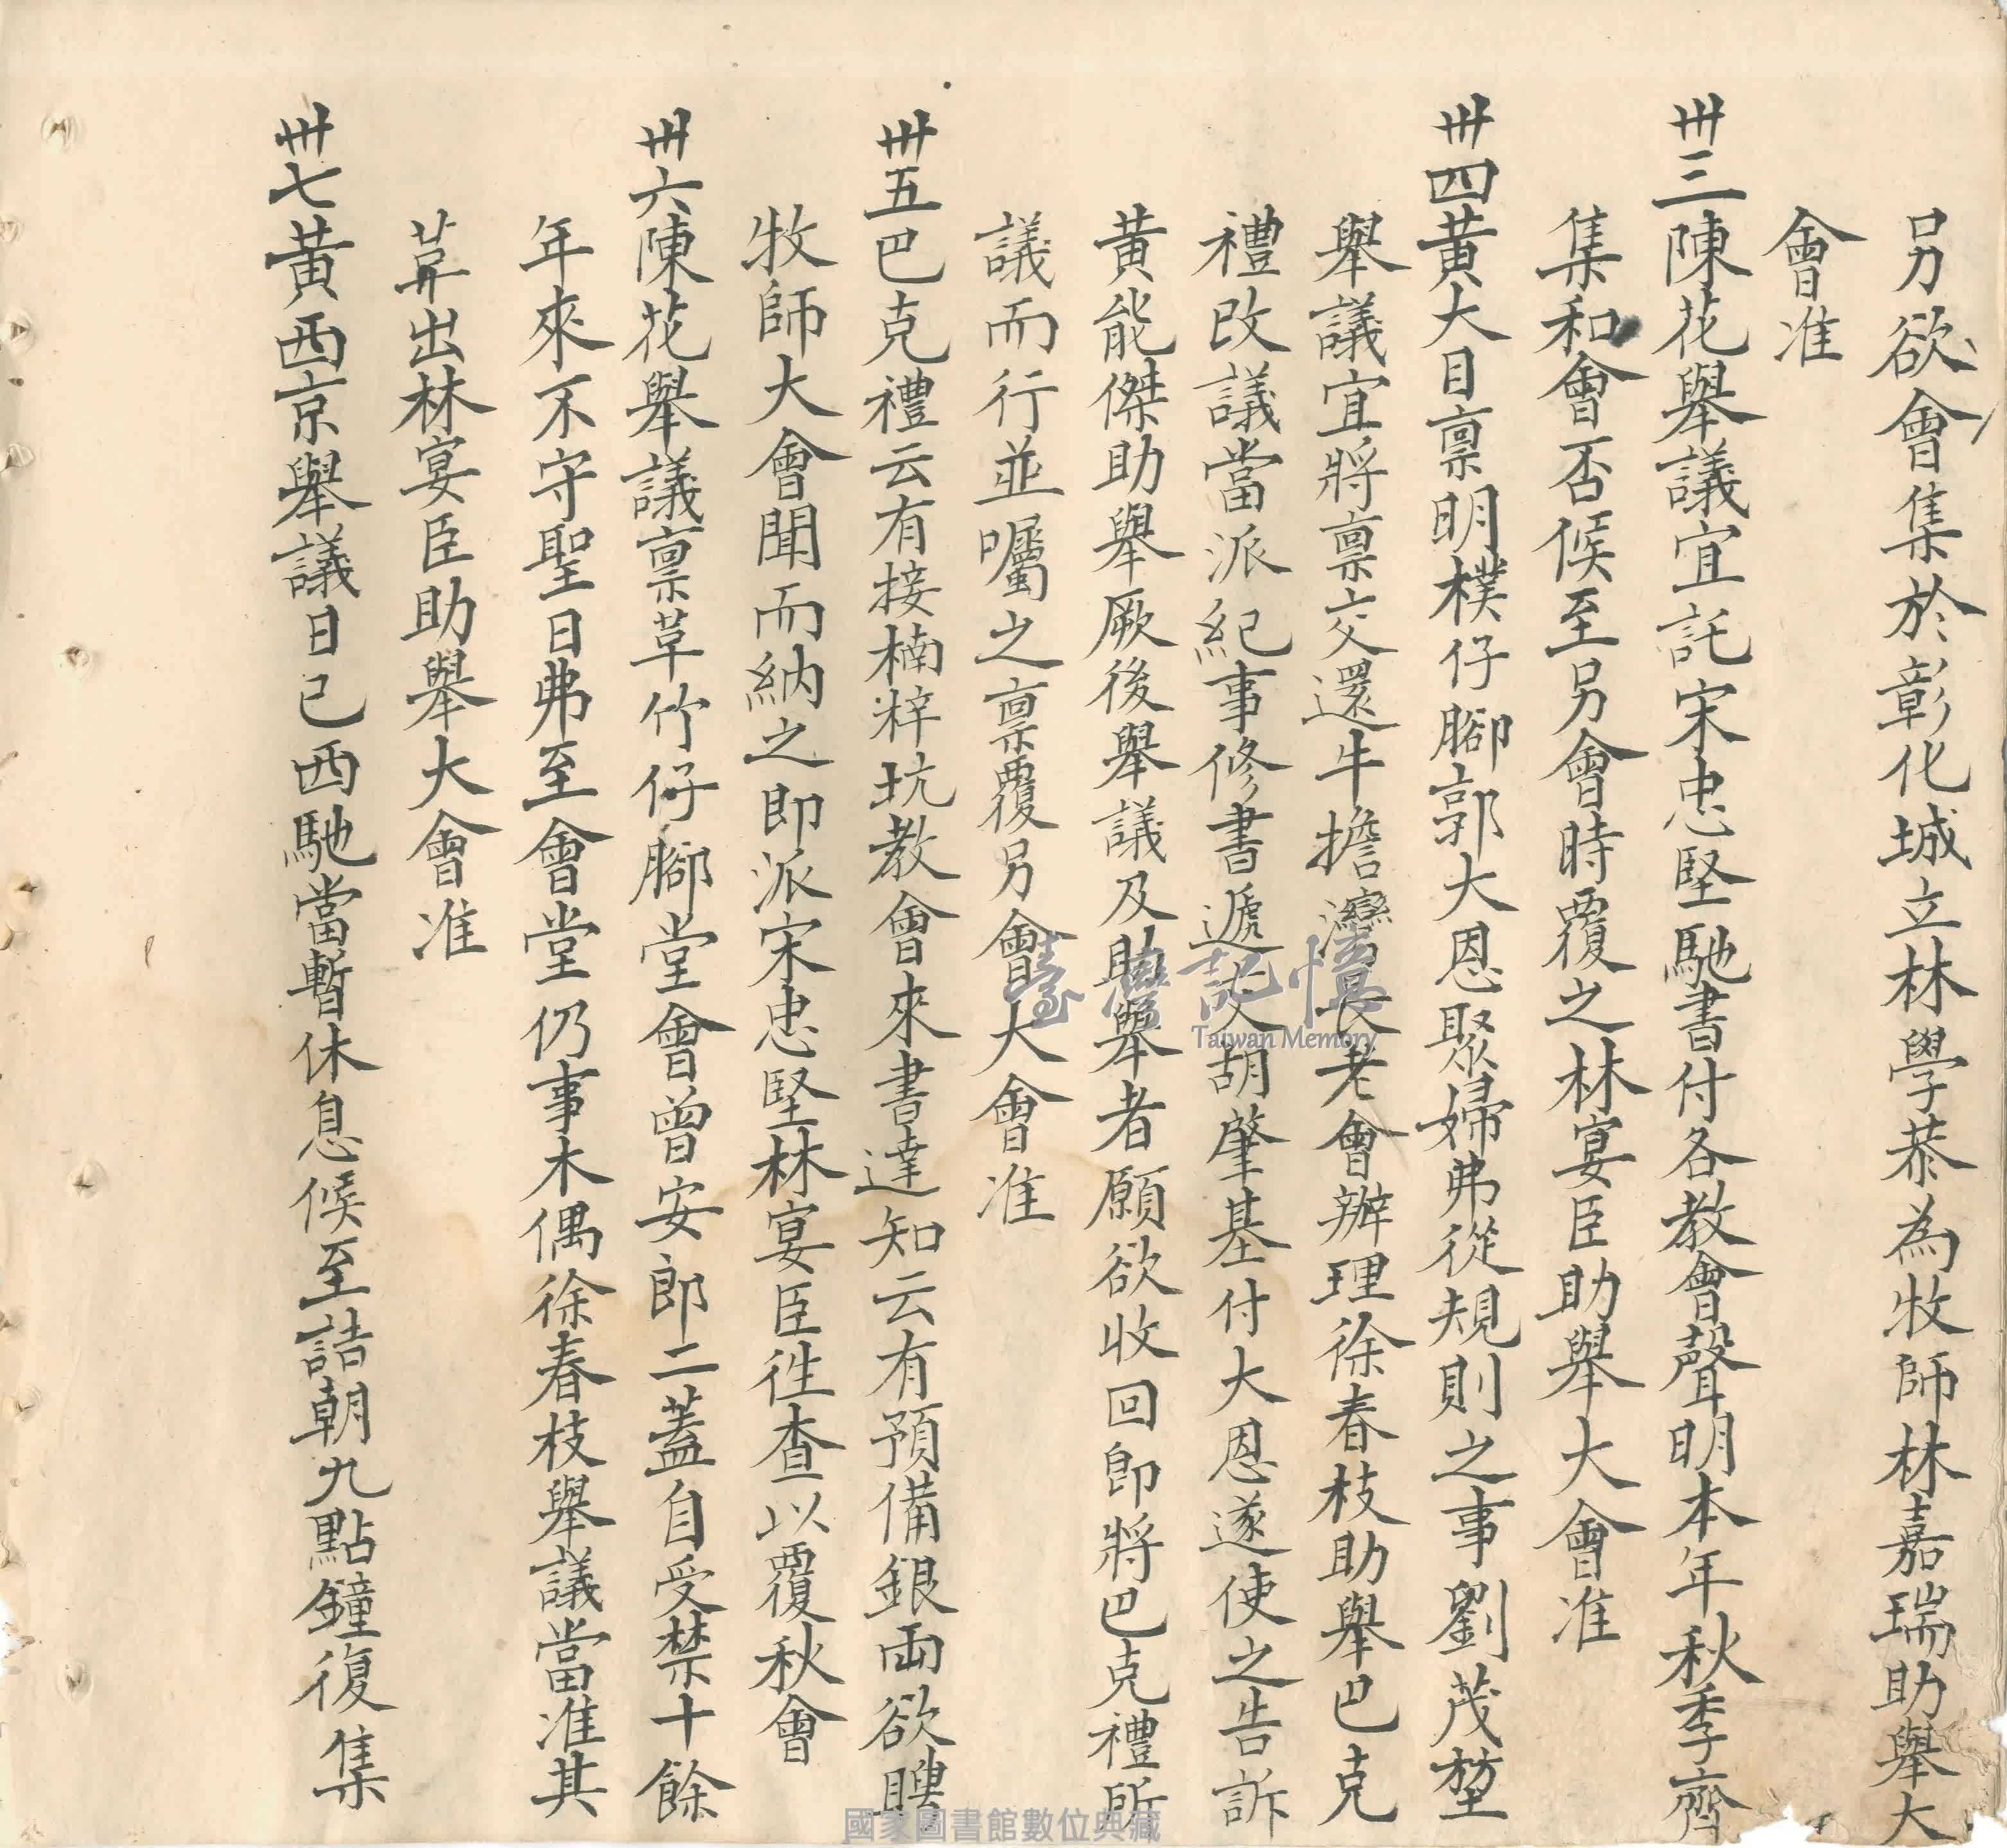 另欲會集於彰化城立林學恭為牧師林嘉瑞助舉大
會准
卅三陳花舉議宜託宋忠堅馳書付各教會聲明本年秋季齊
集和會否候至另會時覆之林宴臣助舉大會准
卅四黃大目禀明樸仔腳郭大恩聚婦弗從規則之事劉茂堃
舉議宜將禀交還牛擔灣長老會辦理徐春枝助舉巴克
禮改議當派紀事修書遞交胡肇基付大恩遂使之告訴
黃能傑助舉厥後舉議及助舉者願欲收回即將巴克禮所
議而行並囑之禀覆另會大會准
卅五巴克禮云有接楠梓坑教會來書達知云有預備銀兩欲聘
牧師大會聞而納之即派宋忠堅林宴臣徃查以覆秋會
卅六陳花舉議禀草竹仔腳堂會曾安郎二蓋自受禁十餘
年來不守聖日弗至會堂仍事木偶徐春枝舉議當准其
革出林宴臣助舉大會准
卅七黃西京舉議日已西馳當暫休息候至詰朝九點鐘復集
臺灣記憶
Taiwan Memory
國家圖書館數位典藏